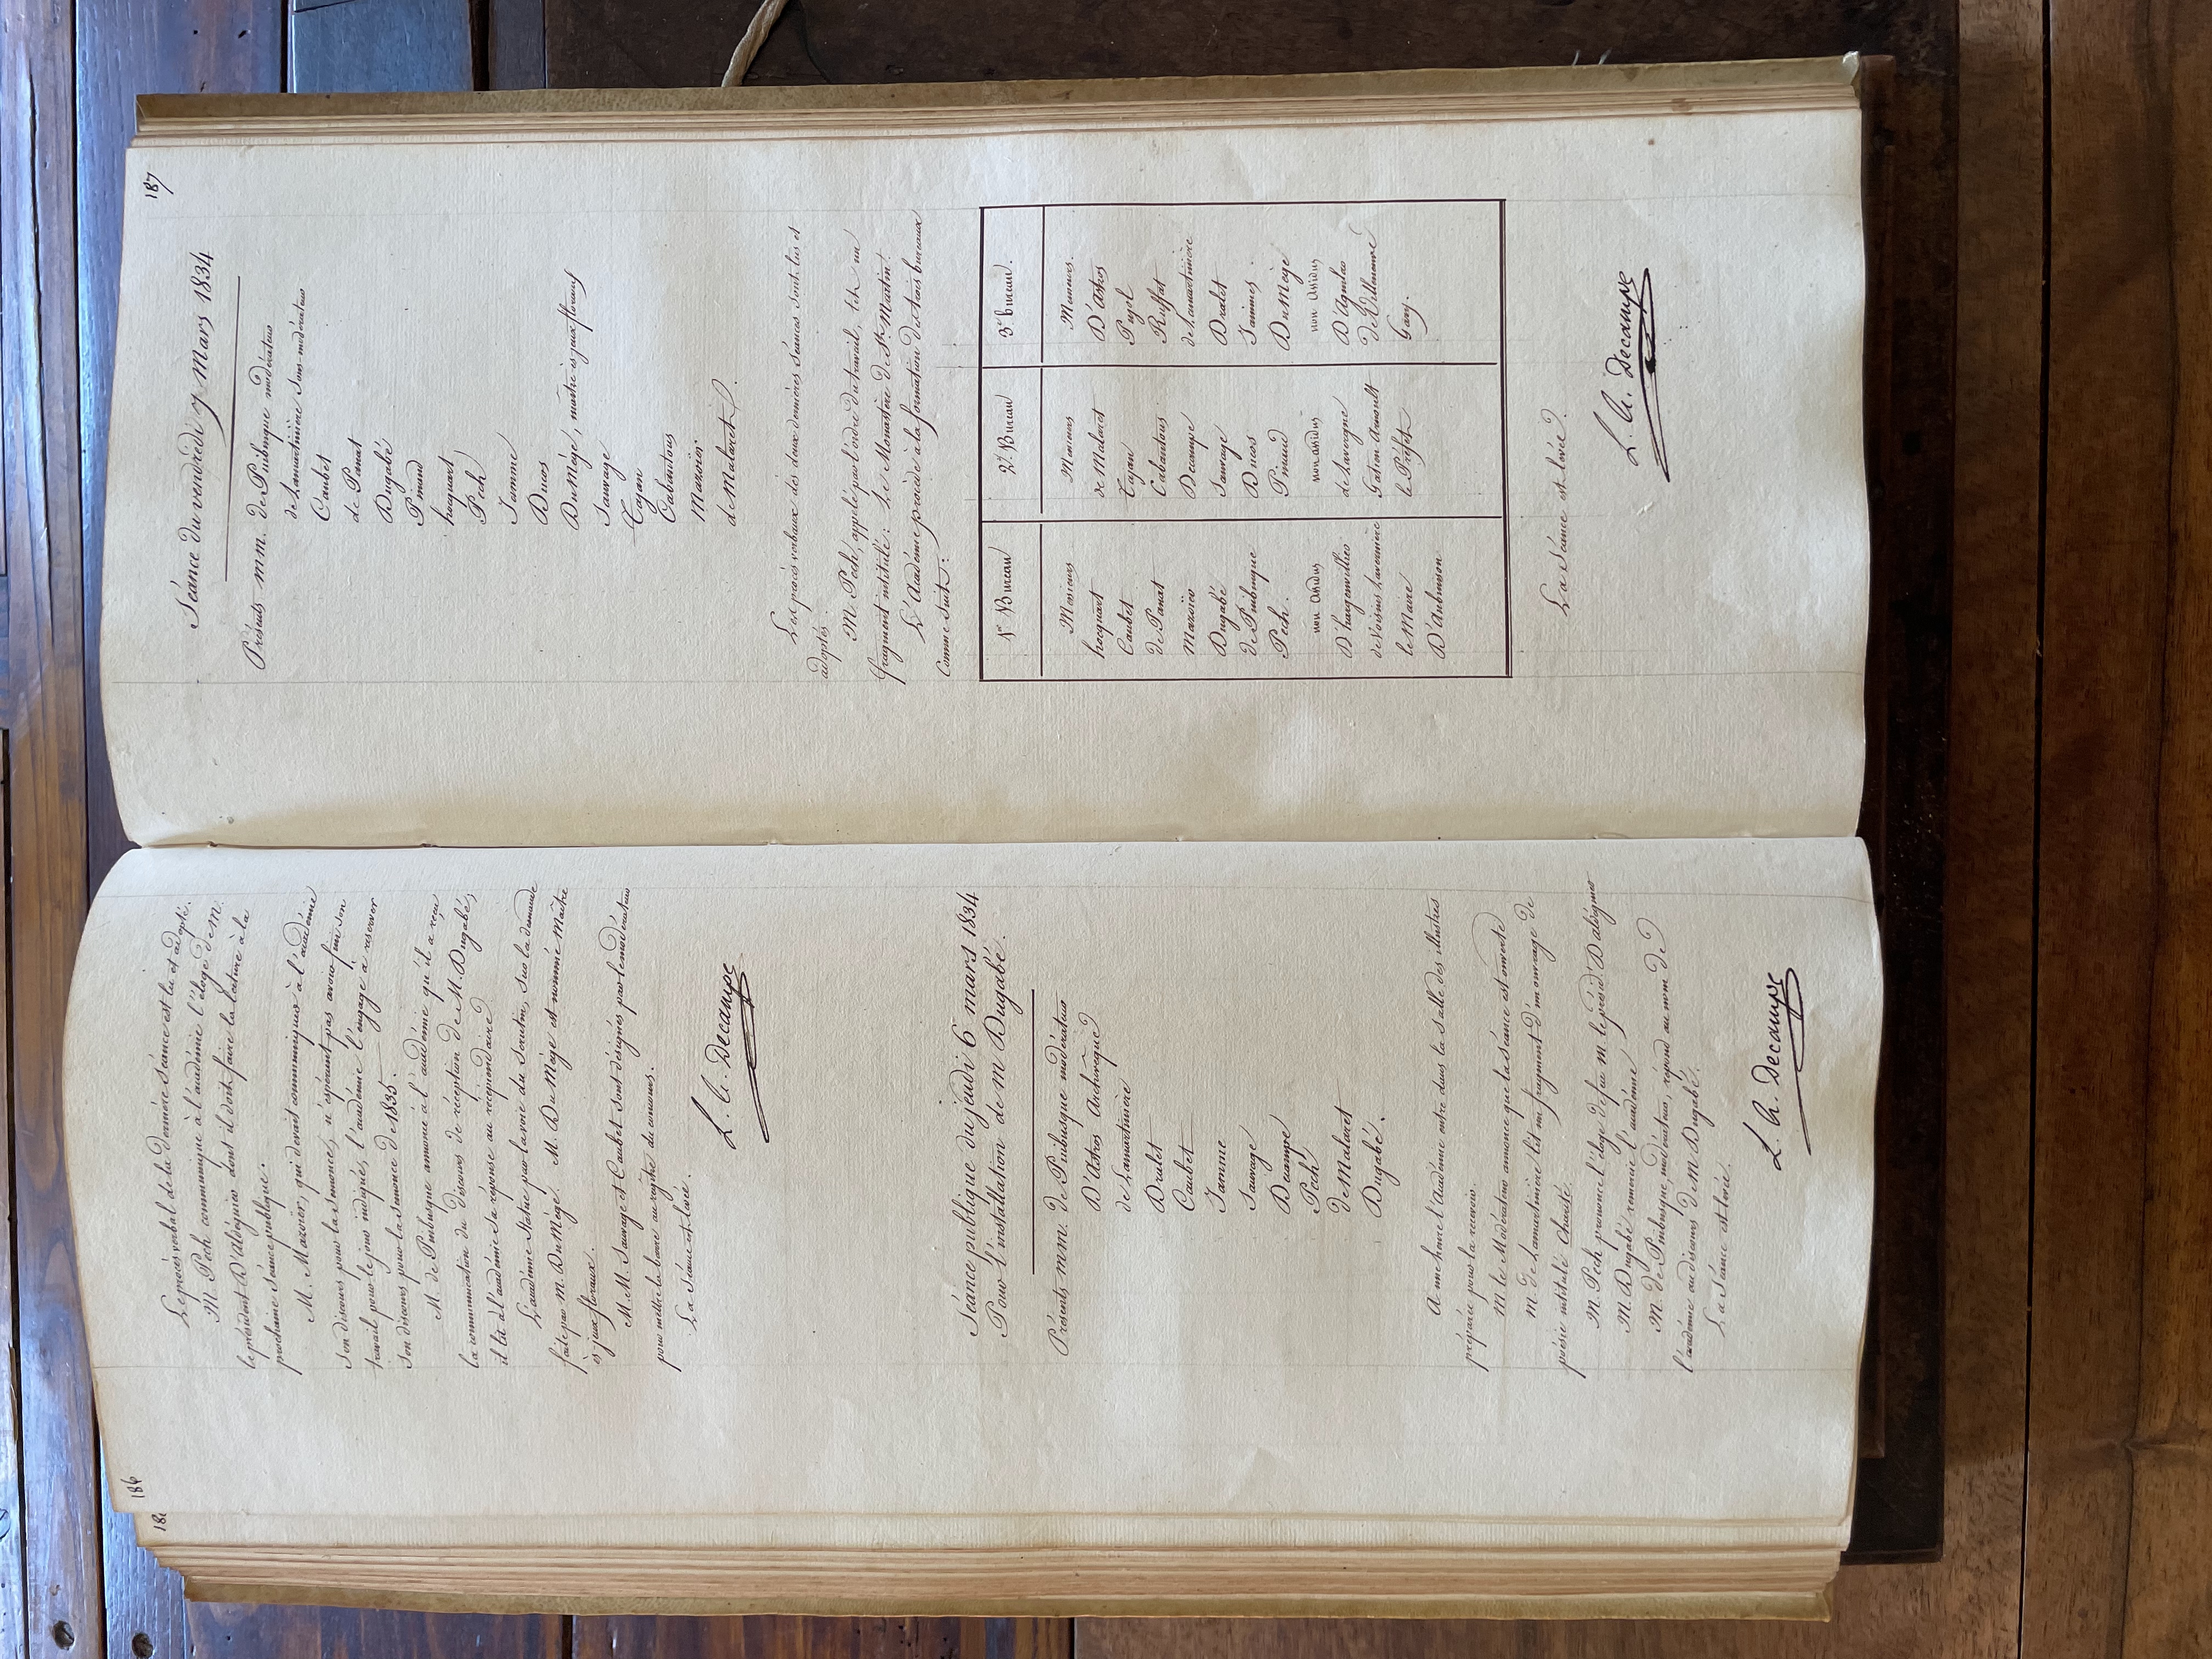 186
Le procès verbal de la dernière séance est lu et adopté.
M. Pech communique à l'académie l'éloge de M.
le président D'Aldéguier dont il doit faire la lecture à la
prochaine séance publique.
M. Mazoïer, qui devait communiquer à l'académie
son discours pour la semonce, n'espérant pas avoir fini son
travail pour le jour indiqué, l'académie l'engage à réserver
son discours pour la semonce de 1835.
M. de Puibusque annonce à l'académie qu'il a reçu
la communication du discours de réception de M. Dugabé,
il lit à l'académie sa réponse au récipiendaire.
L'académie statue par la voie du scrutin, sur la demande
faite par M. Du Mège. M. Du Mège est nommé Maître
ès jeux floraux.
M.M. Sauvage et Caubet sont désignés par le modérateur
pour mettre la barre au registre du concours.
La séance est levée.
L. A. Decampe
Séance publique du jeudi 6 mars 1834
Pour l'installation de m Dugabé.
Présents mm. de Puibusque modérateur
D'Astros Archevêque
de Lamartinière
Dralet
Caubet
Jamme
Sauvage
Decampe
Pech
de Malaret
Dugabé.
A une heure l'Académie entre dans la salle des illustres
préparée pour la recevoir.
M le Modérateur annonce que la séance est ouverte
M. de Lamartinière lit un fragment d'un ouvrage de
poésie intitulé Charité.
M. Pech prononce l'éloge de feu m. le présid.t D'aldéguier
M. Dugabé remercie l'académie
M. de Puibusque, modérateur, répond au nom de
l'académie au discours de M Dugabé.
La Séance est levée.
L. A. Decampe
187
Séance du vendredi 7 Mars 1834
Présents mm. de Puibusque modérateur
de Lamartinière sous-modérateur
Caubet
de Panat
Dugabé
Pinaud
hocquart
Pech
Jamme
Ducos
Du Mège, maître ès jeux floraux
Sauvage
Tajan
Cabantous
Mazoïer
de Malaret.
Les procès verbaux des deux dernières séances sont lus et
adoptés.
M. Pech, appelé par l'ordre du travail, lit un
fragment intitulé: Le Monastère de St. Martin.
L'Académie procède à la formation des trois bureaux
comme suit:
1er Bureau
Messieurs
hocquart
Caubet
de Panat
Mazoïer
Dugabé
de Puibusque
Pech.
non assidus
D'hargenvillier
de Voisins Lavernière
le Maire
D'Aubuisson
2e. Bureau
Messieurs
de Malaret
Tajan
Cabantous
Decampe
Sauvage
Ducos
Pinaud
non assidus
de Lavergne
Gatien Arnoult
le Préfet
3e bureau.
Messieurs.
D'Astros
Pujol
Ruffat
de Lamartinière
Dralet
Jammes.
Du Mège
non assidus
D'Aguilar
de Villeneuve
Gary.
La Séance est levée.
L. A. Decampe